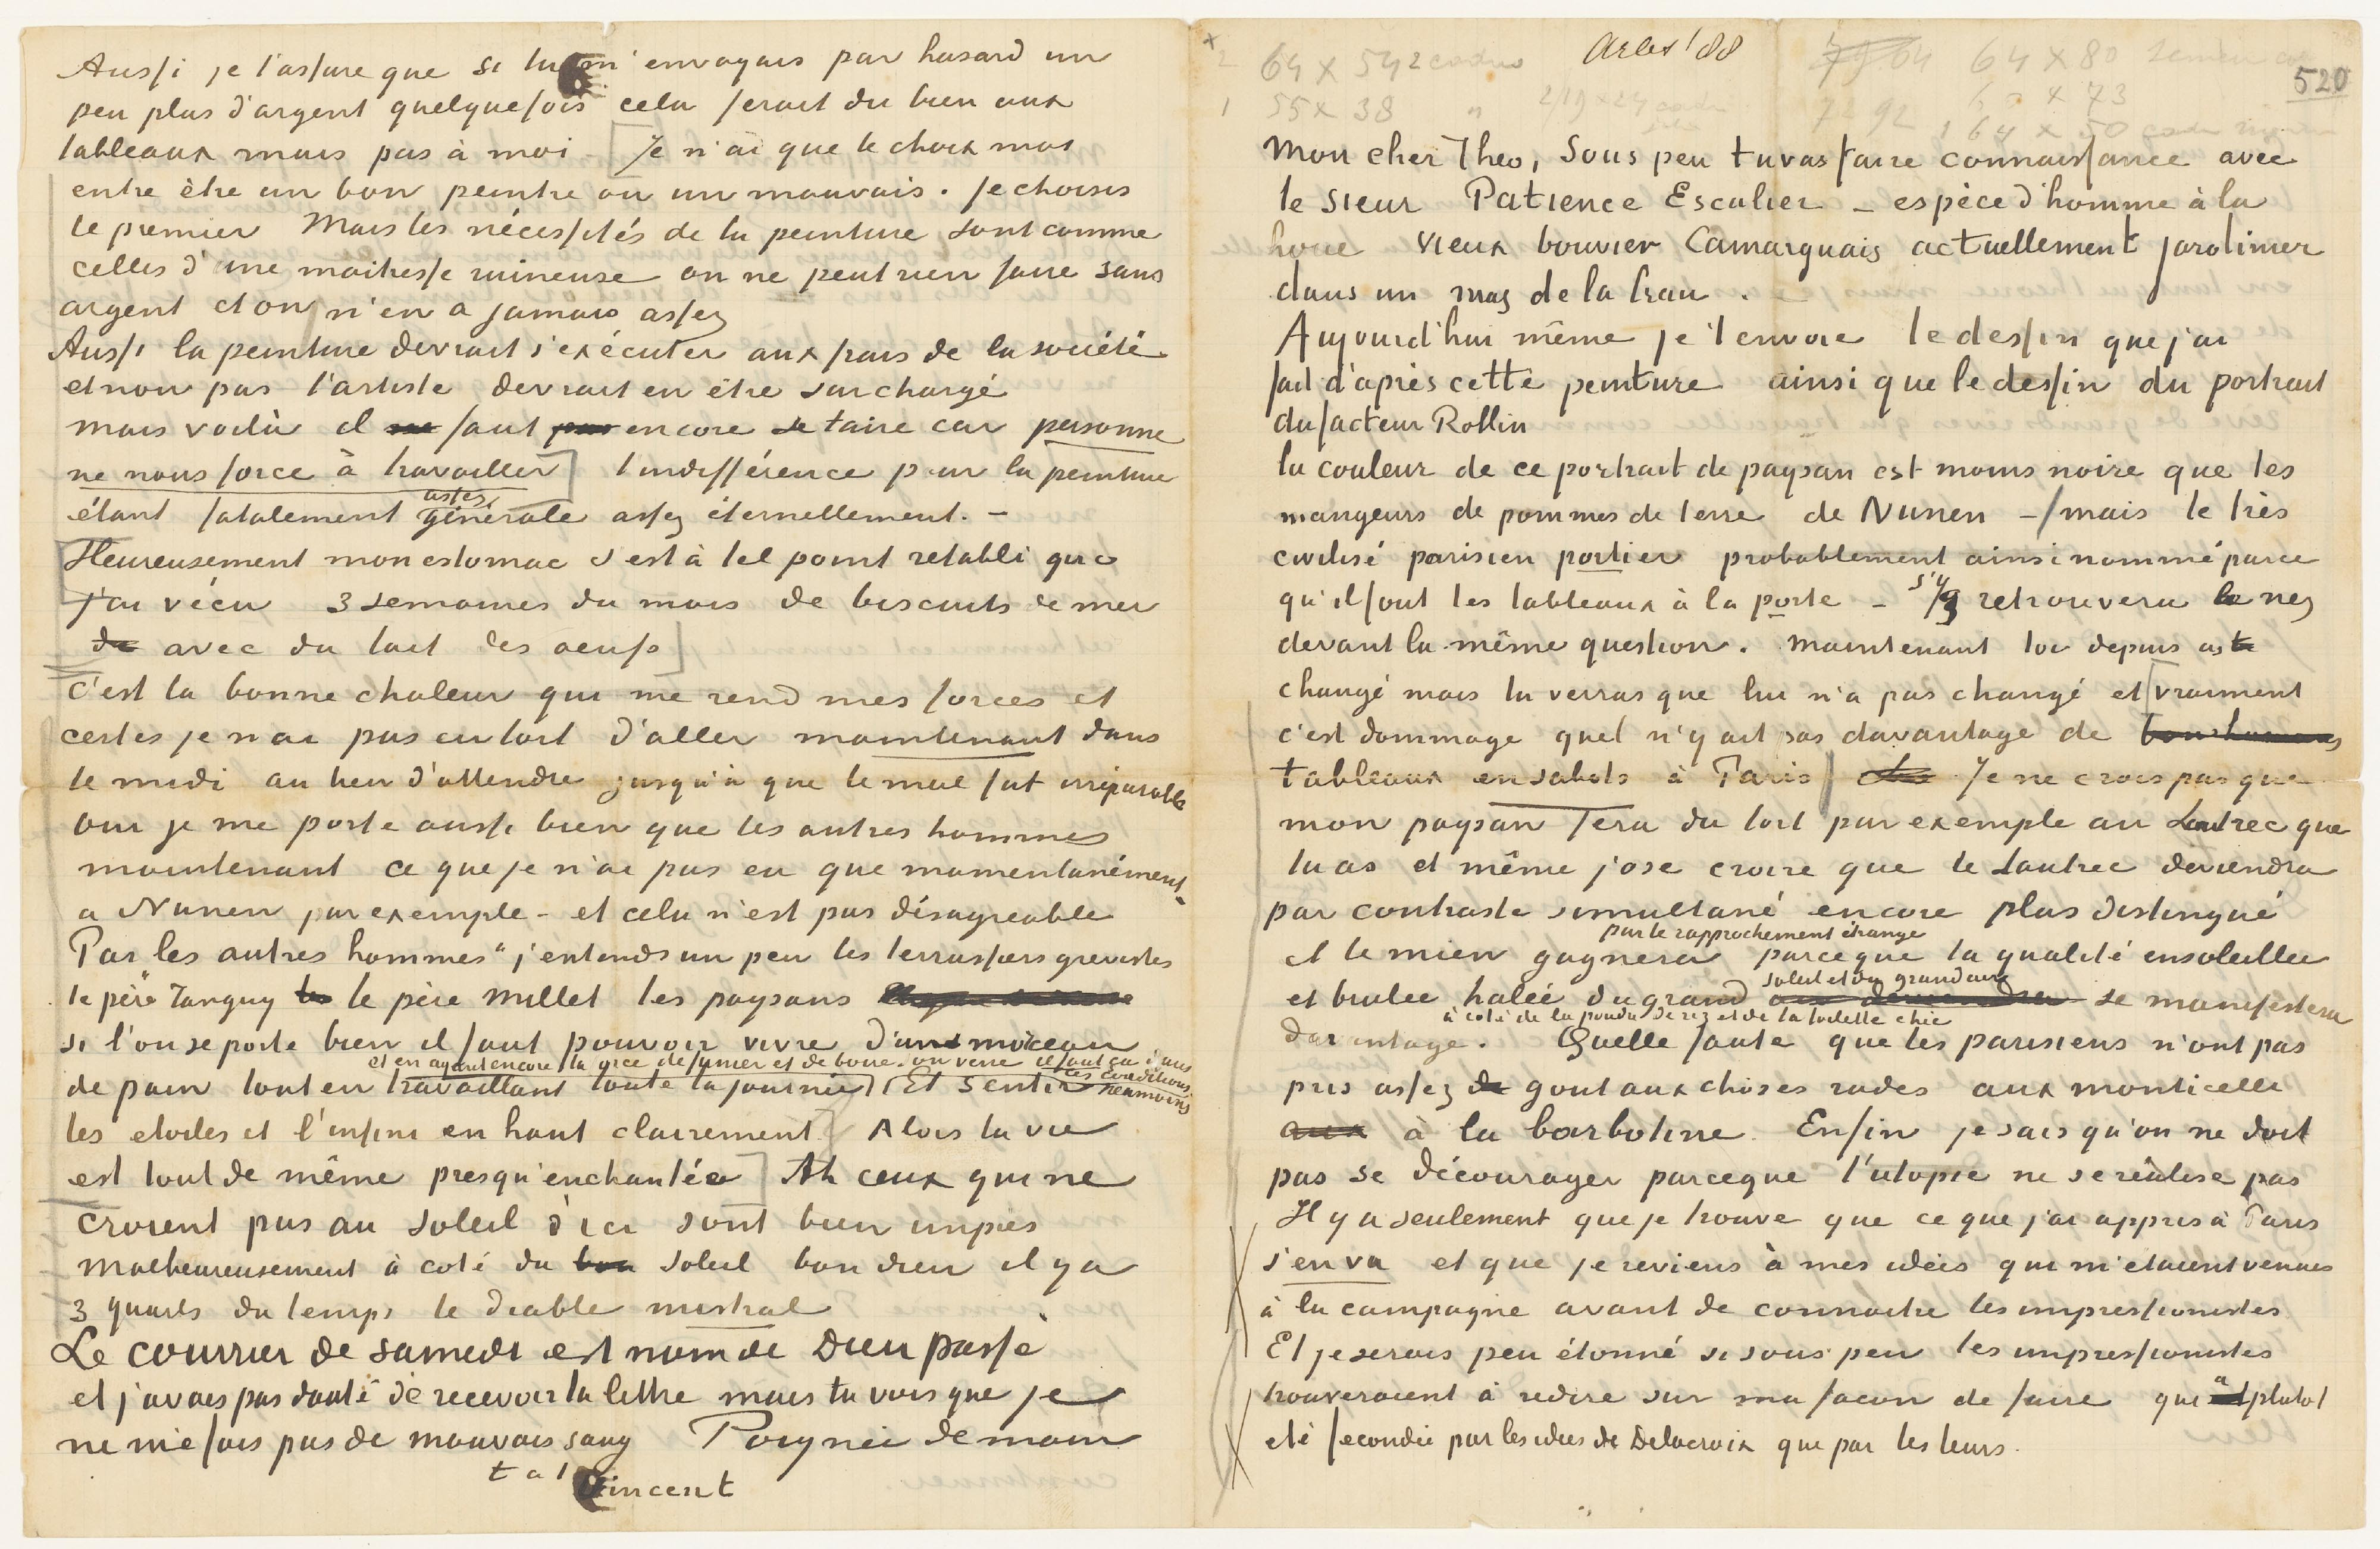 Aussi je t'assure que si tu m'envoyais par hasard un
peu plus d'argent quelquefois cela ferait du bien aux
tableaux mais pas à moi – Je n'ai que le choix moi
entre être un bon peintre ou un mauvais. Je choisis
le premier Mais les nécessités de la peinture sont comme
celles d'une maitresse ruineuse on ne peut rien faire sans
argent et on n'en a jamais assez
Aussi la peinture devrait s'exécuter aux frais de la société
et non pas l'artiste devrait en être surchargé
mais voilà il faut encore se taire car personne
ne nous force à travailler l'indifférence pour la peinture
étant fatalement assez générale assez éternellement. –
Heureusement mon estomac s'est à tel point retabli que
j'ai vécu 3 semaines du mois de biscuits de mer
de avec du lait des oeufs
C'est la bonne chaleur qui me rend mes forces et
certes je n'ai pas eu tort d'aller maintenant dans
le midi au lieu d'attendre jusqu'à que le mal fut irréparable
Oui je me porte aussi bien que les autres hommes
maintenant ce que je n'ai pas eu que momentanément
a Nunen par exemple – et cela n'est pas désagreable
Par les autres hommes" j'entends un peu les terrassiers grevistes
le père Tanguy le père Millet les paysans
si l'on se porte bien il faut pouvoir vivre d'un morceau
et en ayant encore la force de fumer et de boire un verre il faut ça dans ces conditions
de pain tout en travaillant toute la journée Et sentir neamoins
les etoiles et l'infini en haut clairement Alors la vie
est tout de même presqu'enchantée Ah ceux qui ne
croient pas au soleil d'ici sont bien impies
Malheureusement à coté du bon soleil bon dieu il y a
3 quarts du temps le diable mistral
Le courrier de samedi est nom de Dieu passé
et j'avais pas douté de recevoir ta lettre mais tu vois que je
ne me fais pas de mauvais sang Poignée de main
t. à t.
Vincent
Arles '88
64 x 54 2 cadres
64 x 80
55 x 38
520
Mon cher Theo, Sous peu tu vas faire connaissance avec
le sieur Patience Escalier – espèce d'homme à la
houe vieux bouvier Camarguais actuellement jardinier
dans un mas de la Crau.
Aujourd'hui même je t'envoie le dessin que j'ai
fait d'après cette peinture ainsi que le dessin du portrait
du facteur Rollin
la couleur de ce portrait de paysan est moins noire que les
mangeurs de pommes de terre de Nunen – mais le très
civilisé parisien portier probablement ainsi nommé parce
qu'il fout les tableaux à la porte – s'y retrouvera le nez
devant la même question. Maintenant toi depuis as
changé mais tu verras que lui n'a pas changé et vraiment
c'est dommage quel n'y ait pas davantage de
tableaux en sabots à Paris Je ne crois pas que
mon paysan fera du tort par exemple au Lautrec que
tu as et même j'ose croire que le Lautrec deviendra
par contraste simultané encore plus distingué
et le mien gagnera par le rapprochement étrange parceque la qualité ensoleillée
et brulée halée du grand soleil et du grand air se manifestera
à coté de la poudre de riz et de la toilette chic
davantage. Quelle faute que les parisiens n'ont pas
pris assez de gout aux choses rudes aux monticelli
aux à la barbotine Enfin je sais qu'on ne doit
pas se décourager parceque l'utopie ne se réalise pas
Il y a seulement que je trouve que ce que j'ai appris à Paris
s'en va et que je reviens à mes idées qui m'étaient venues
à la campagne avant de connaitre les impressionistes
Et je serais peu étonné si sous peu les impressionistes
trouveraient à redire sur ma facon de faire qui a plutot
été fecondée par les idées de Delacroix que par les leurs.